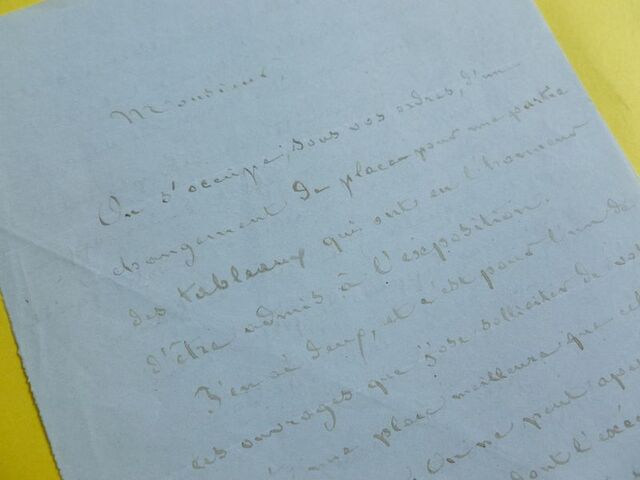 Monsieur,
On s'occupe, sous vos ordres, d'un
changement de place pour une partie
des tableaux qui ont eu l'honneur
d'être admis à l'exposition.
J'en ai deux, et c'est pour l'un de
ces ouvrages que j'ose solliciter de
une place meilleure que
On ne peut
dont